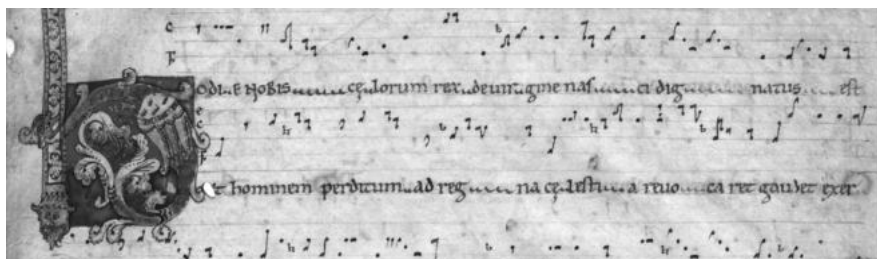 ODIE NOBIS cęlorum rex de uirgine nasci dignatus est
ut hominem perditum ad regna cęlestia reuocaret gaudet exer